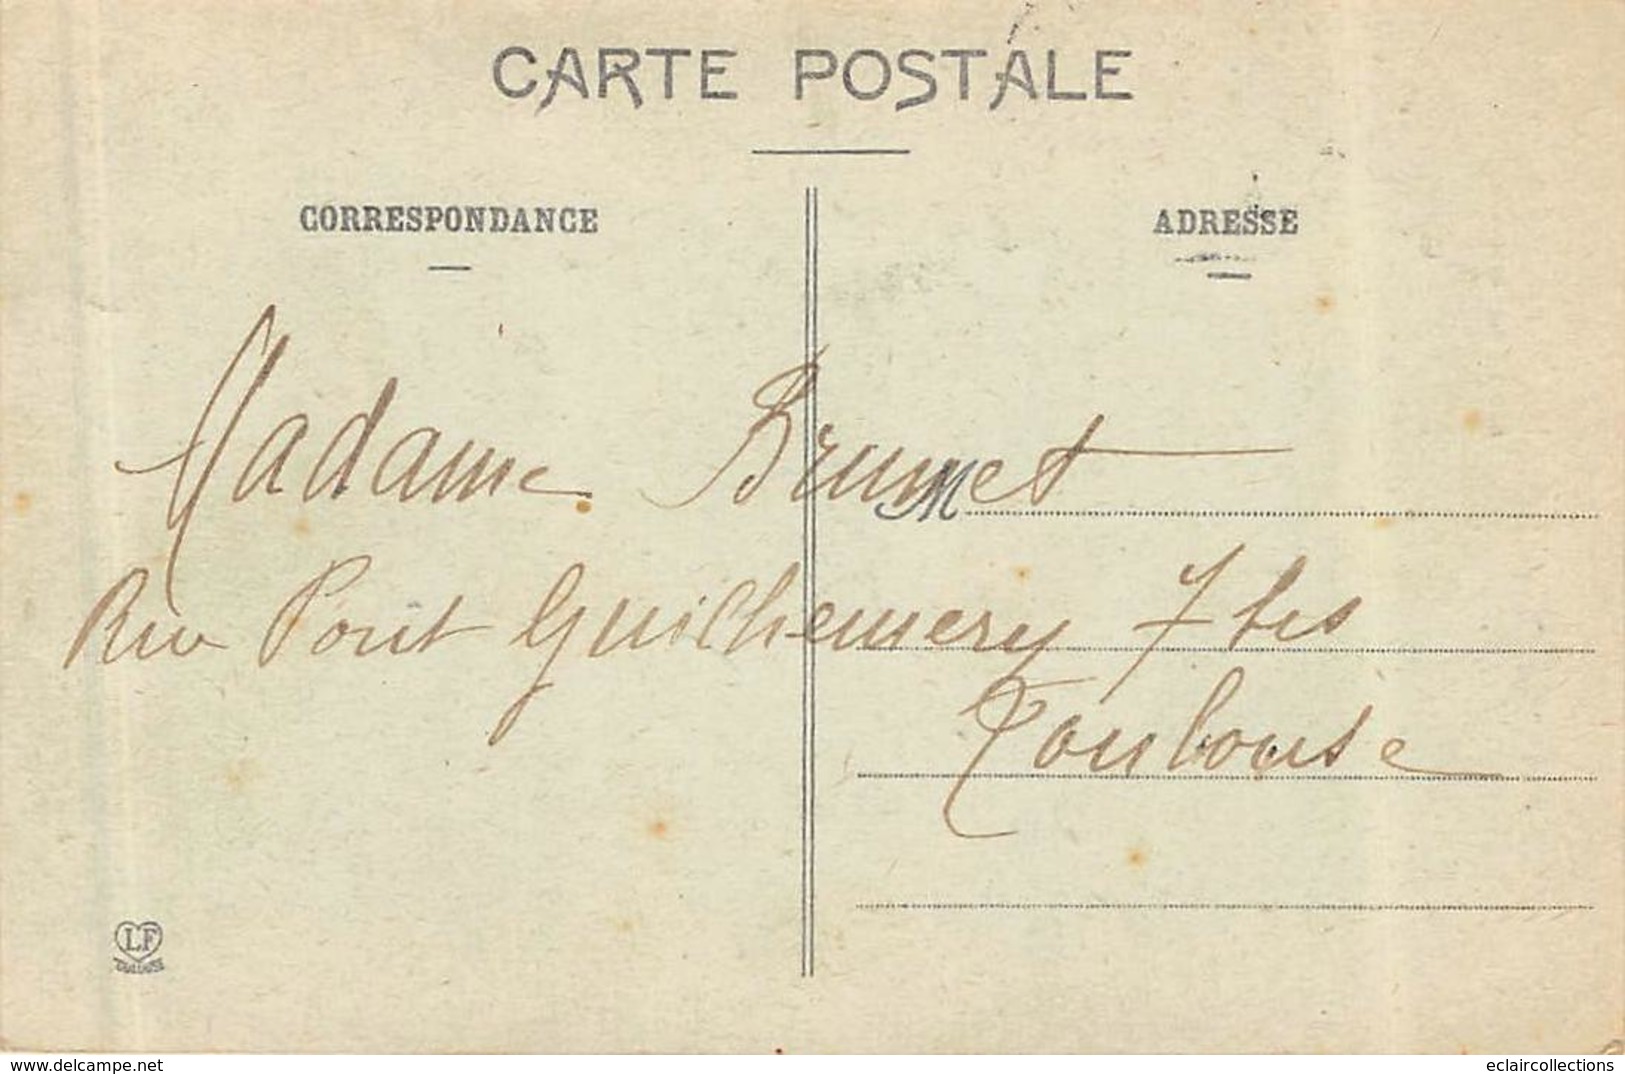 CARTE POSTALE
CORRESPONDANCE
ADRESSE
Madame Brunet
Rue Pont Guilhemery 7 bis
Toulouse
LF
TOULOUSE
www.delcampe.net
eclaircollections